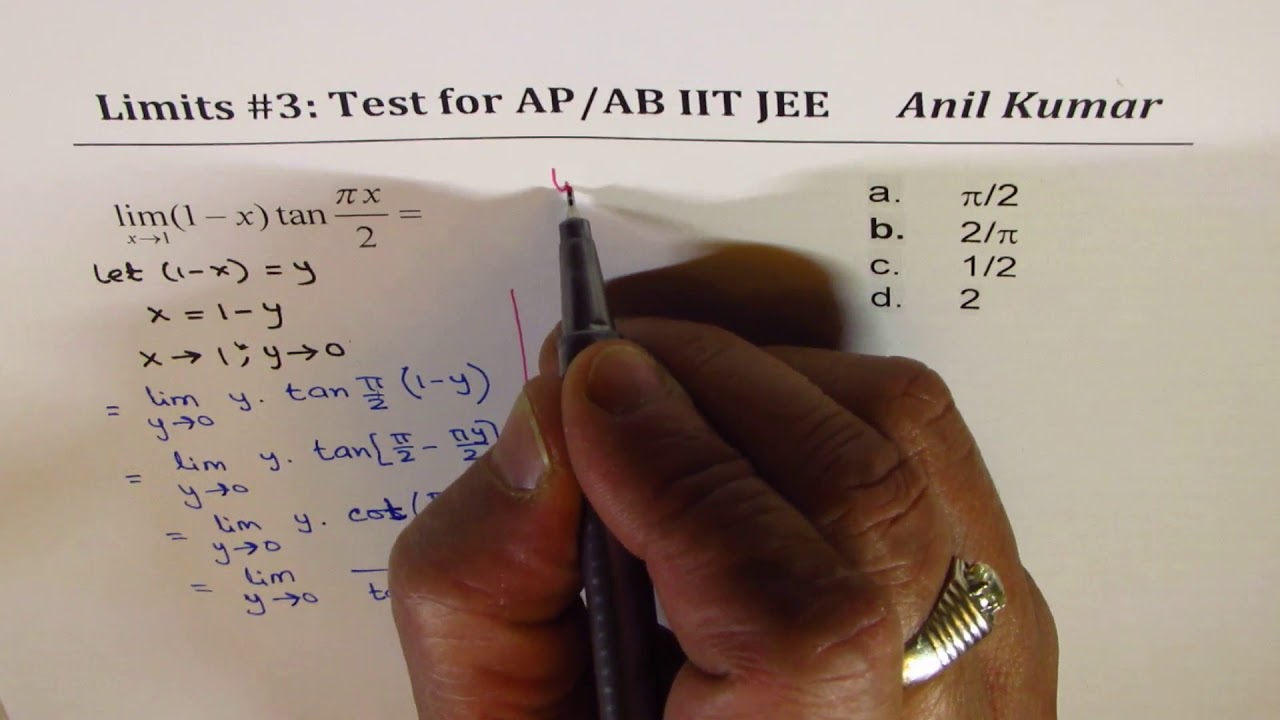 Limits #3: Test for AP/AB IIT JEE Anil Kumar
lim(1 − x) tan πx/2 =
x→1
let (1-x) = y
x = 1-y
x → 1 ; y → 0
= lim y. tan π/2 (1-y)
y→0
= lim y. tan[π/2 - πy/2]
y→0
= lim y. cot(
y→0
= lim
y→0
a. π/2
b. 2/π
c. 1/2
d. 2